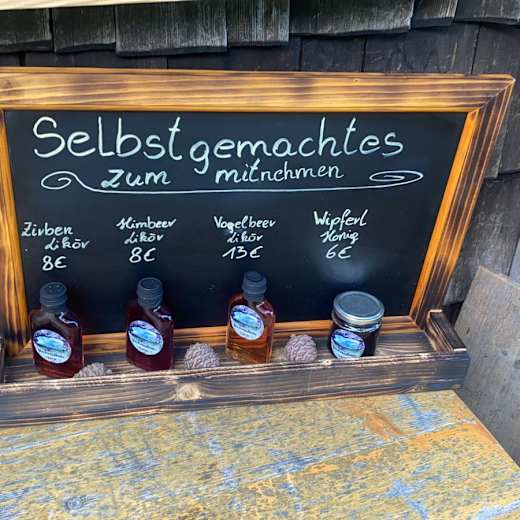 Selbstgemachtes
zum mitnehmen
Zirben
Likör
8€
Himbeer
Likör
8€
Vogelbeer
Likör
13€
Wipferl
Honig
6€